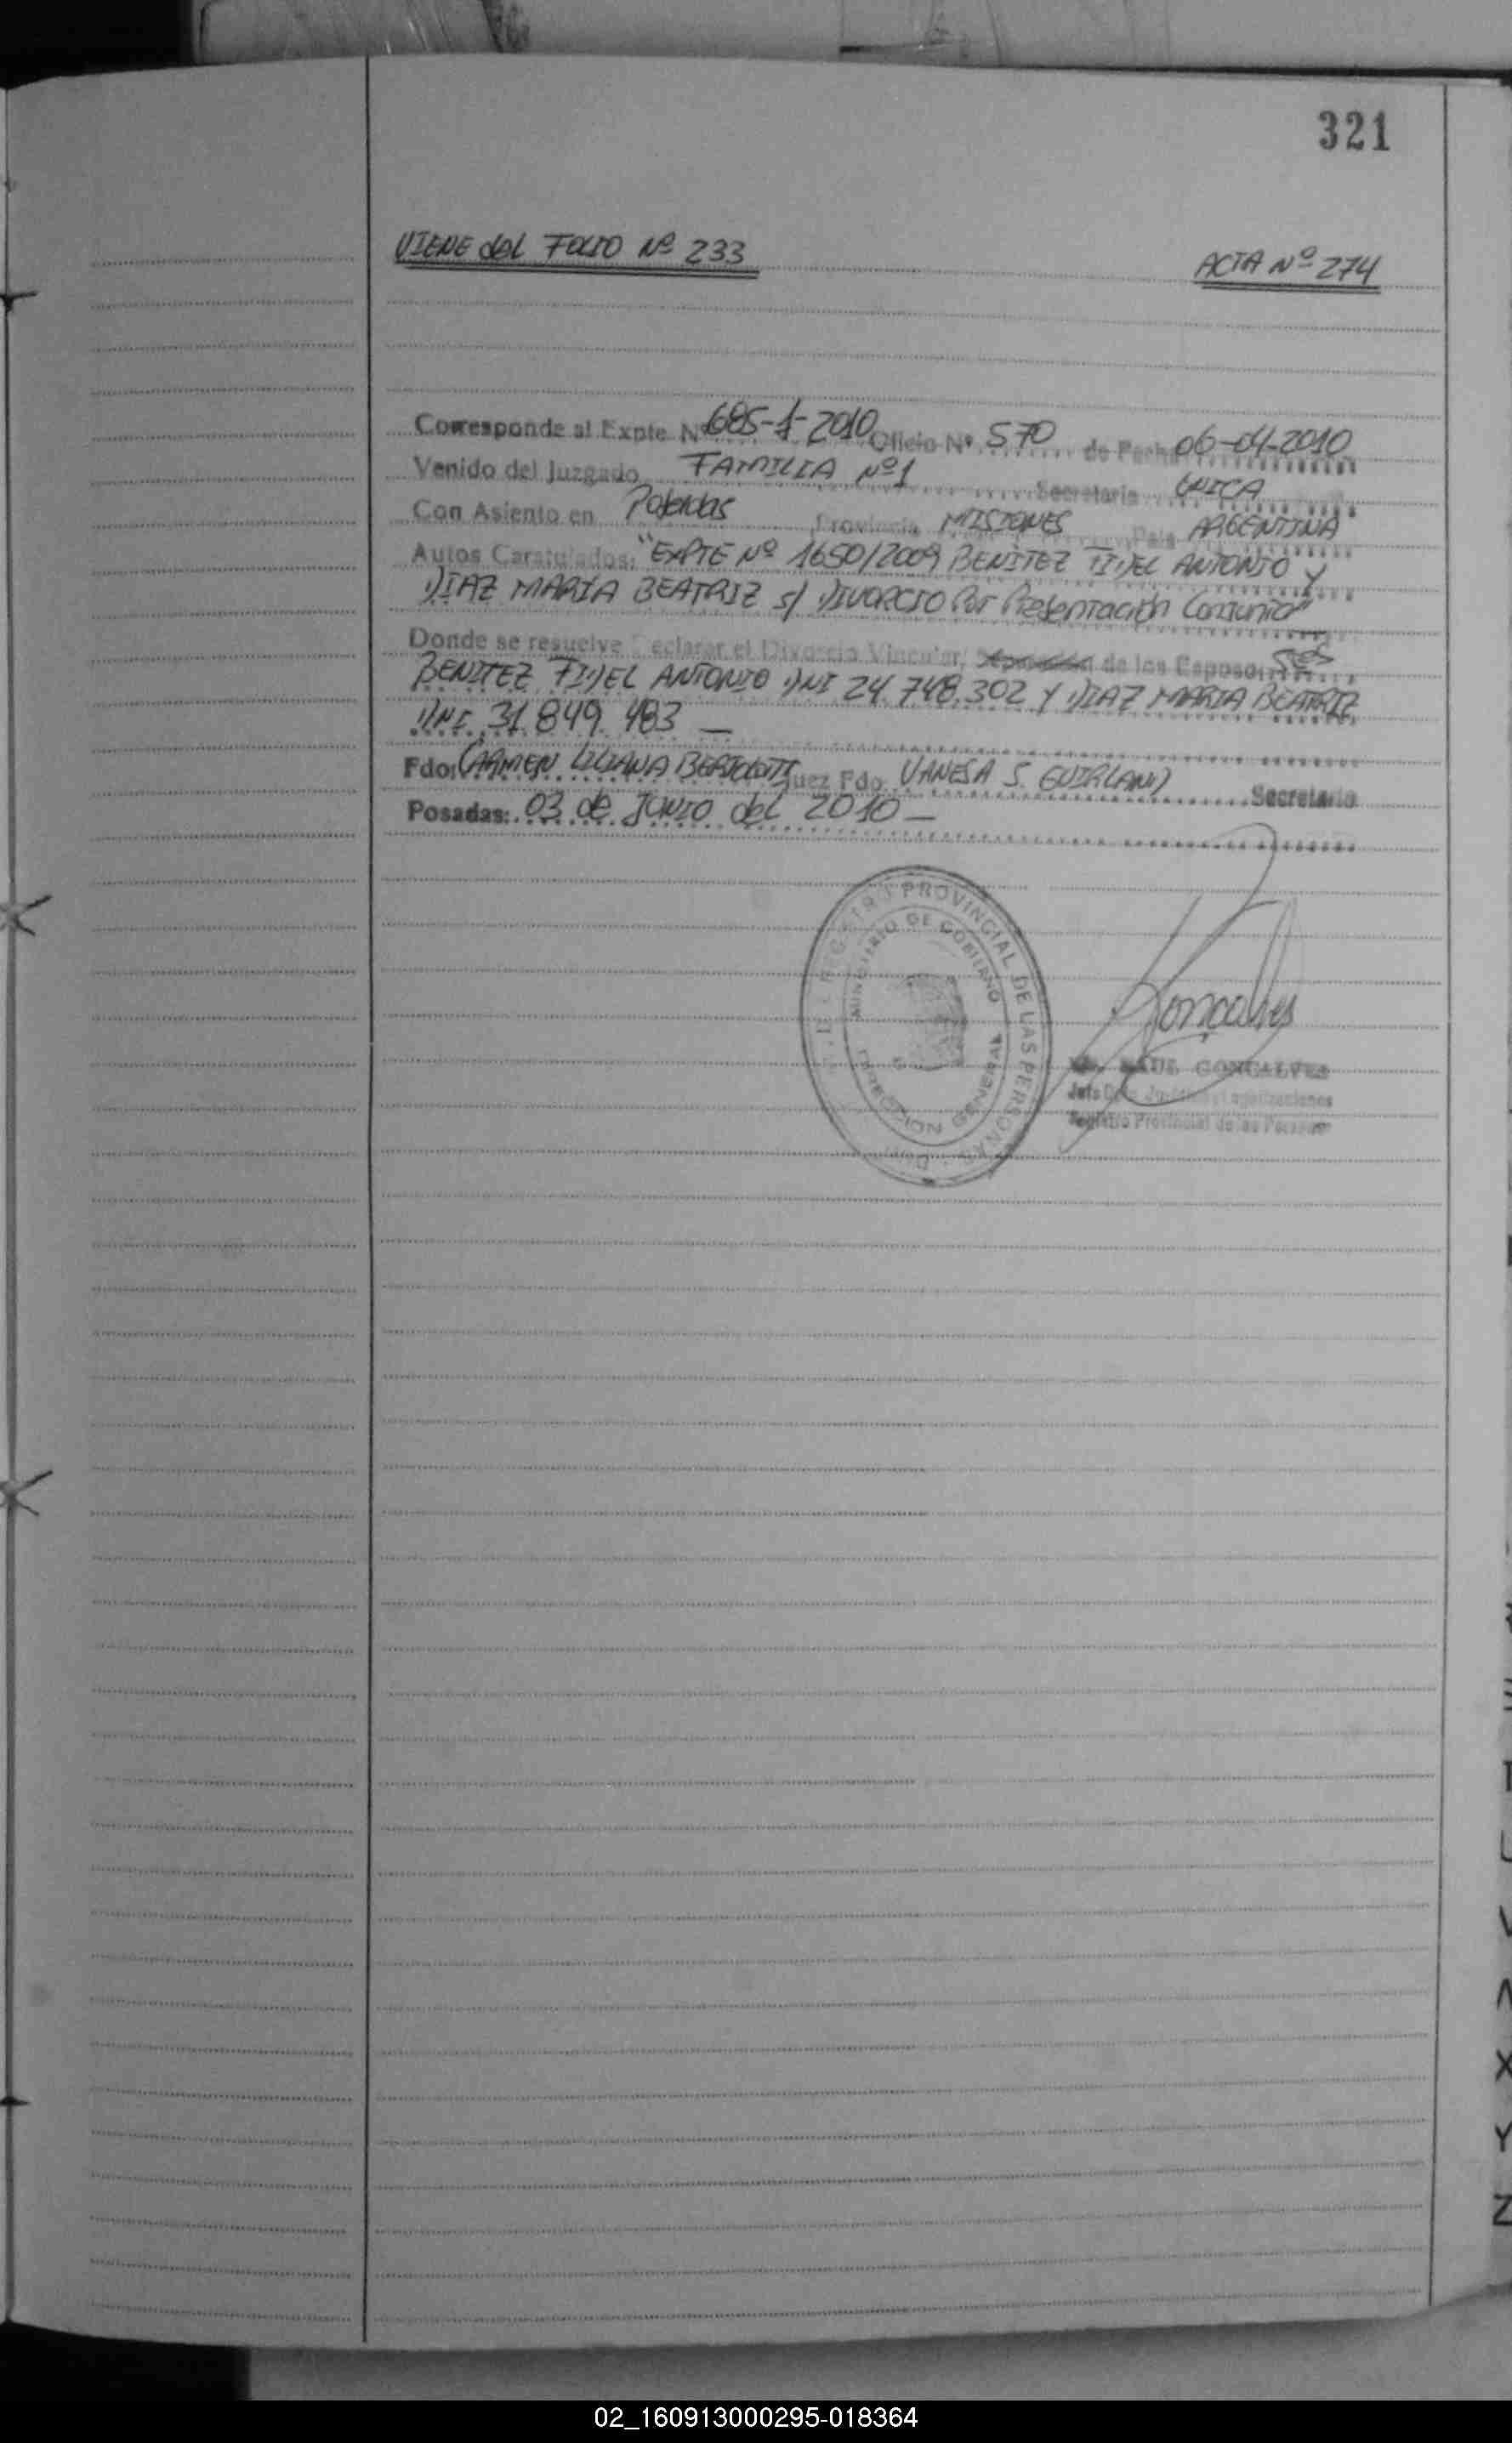 321
VIENE del FOLIO Nº 233
ACTA Nº 274
Corresponde al Expte. Nº 685-1-2010 Oficio Nº 570 de Fecha 06-04-2010
Venido del Juzgado FAMILIA Nº1 Secretaria UNICA
Con Asiento en Posadas Provincia MISIONES Pais ARGENTINA
Autos Caratulados: "EXPTE Nº 1650/2009 BENITEZ FIDEL ANTONIO Y
DIAZ MARIA BEATRIZ s/ DIVORCIO Por Presentación Conjunta"
Donde se resuelve Declarar el Divorcio Vincular, de los Esposos Sres
BENITEZ FIDEL ANTONIO DNI 24.748.302 Y DIAZ MARIA BEATRIZ
DNI 31.849.483 —
Fdo: CARMEN LILIANA BERTOLOTTI Juez Fdo. VANESA S. GUIRLAND Secretario
Posadas: 03 de JUNIO del 2010 —
REGISTRO PROVINCIAL DE LAS PERSONAS
MINISTERIO DE GOBIERNO
DIRECCION GENERAL
Goncalves
RAUL GONCALVES
Jefe Legalizaciones
Registro Provincial de las Personas
X
Y
Z
02_160913000295-018364